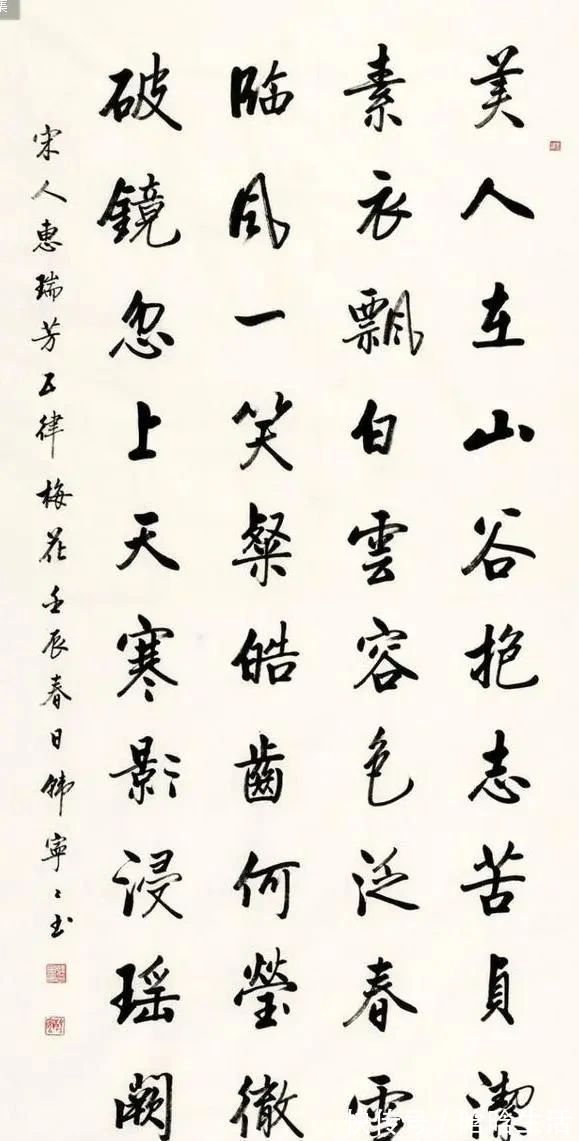 美人在山谷抱志苦貞潔
素衣飄白雲容色泛春雪
臨風一笑粲皓齒何瑩徹
破鏡忽上天寒影浸瑶闕
宋人惠瑞芳五律梅花壬辰春日韩寧〻书
集
快传号/哈哈生活